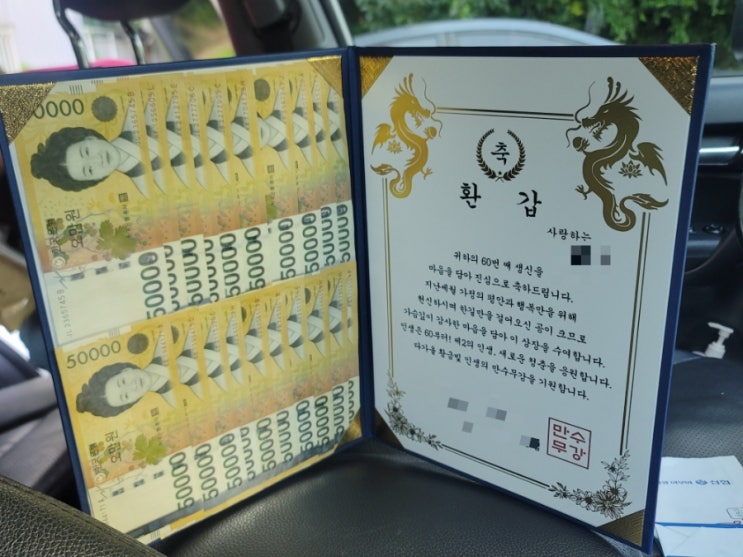 0000
오만원
50000
50000
오만원
50000
축
환 갑
사랑하는
귀하의 60번 째 생신을
마음을 담아 진심으로 축하드립니다.
지난세월 가정의 평안과 행복만을 위해
헌신하시며 한길만을 걸어오신 공이 크므로
가슴깊이 감사한 마음을 담아 이 상장을 수여합니다.
인생은 60부터! 제2의 인생, 새로운 청춘을 응원합니다.
다가올 황금빛 인생의 만수무강을 기원합니다.
만수
무강